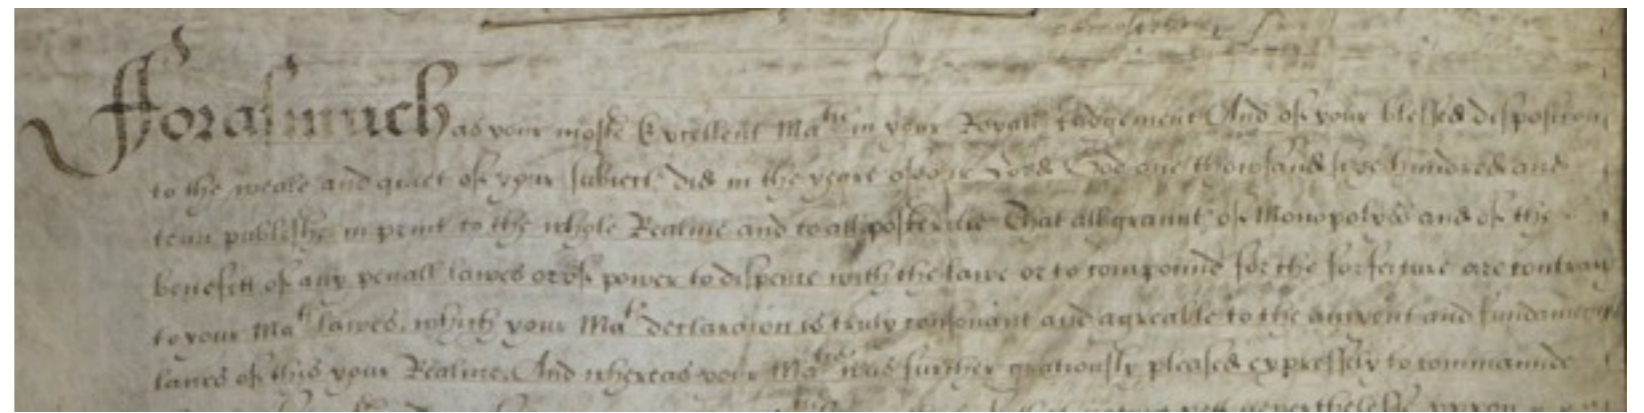 Fforasmuch as your moste Excellent Matie in your Royall Judgement And of your blessed disposition
to the weale and quiet of your subiectes did in the yeare of our Lord God one thowsand sixe hundred and
tenn publishe in print to the whole Realme and to all posteritie That all grauntes of Monopolyes and of the
benefitt of any penall lawes or of power to dispence with the lawe or to compound for the forfeiture are contrary
to your Mats lawes, which your Mats declaracion is truly consonant and agreable to the auncient and fundamentall
lawes of this your Realme. And whereas your Matie was further gratiously pleased expressely to commaunde
nevertheless uppon